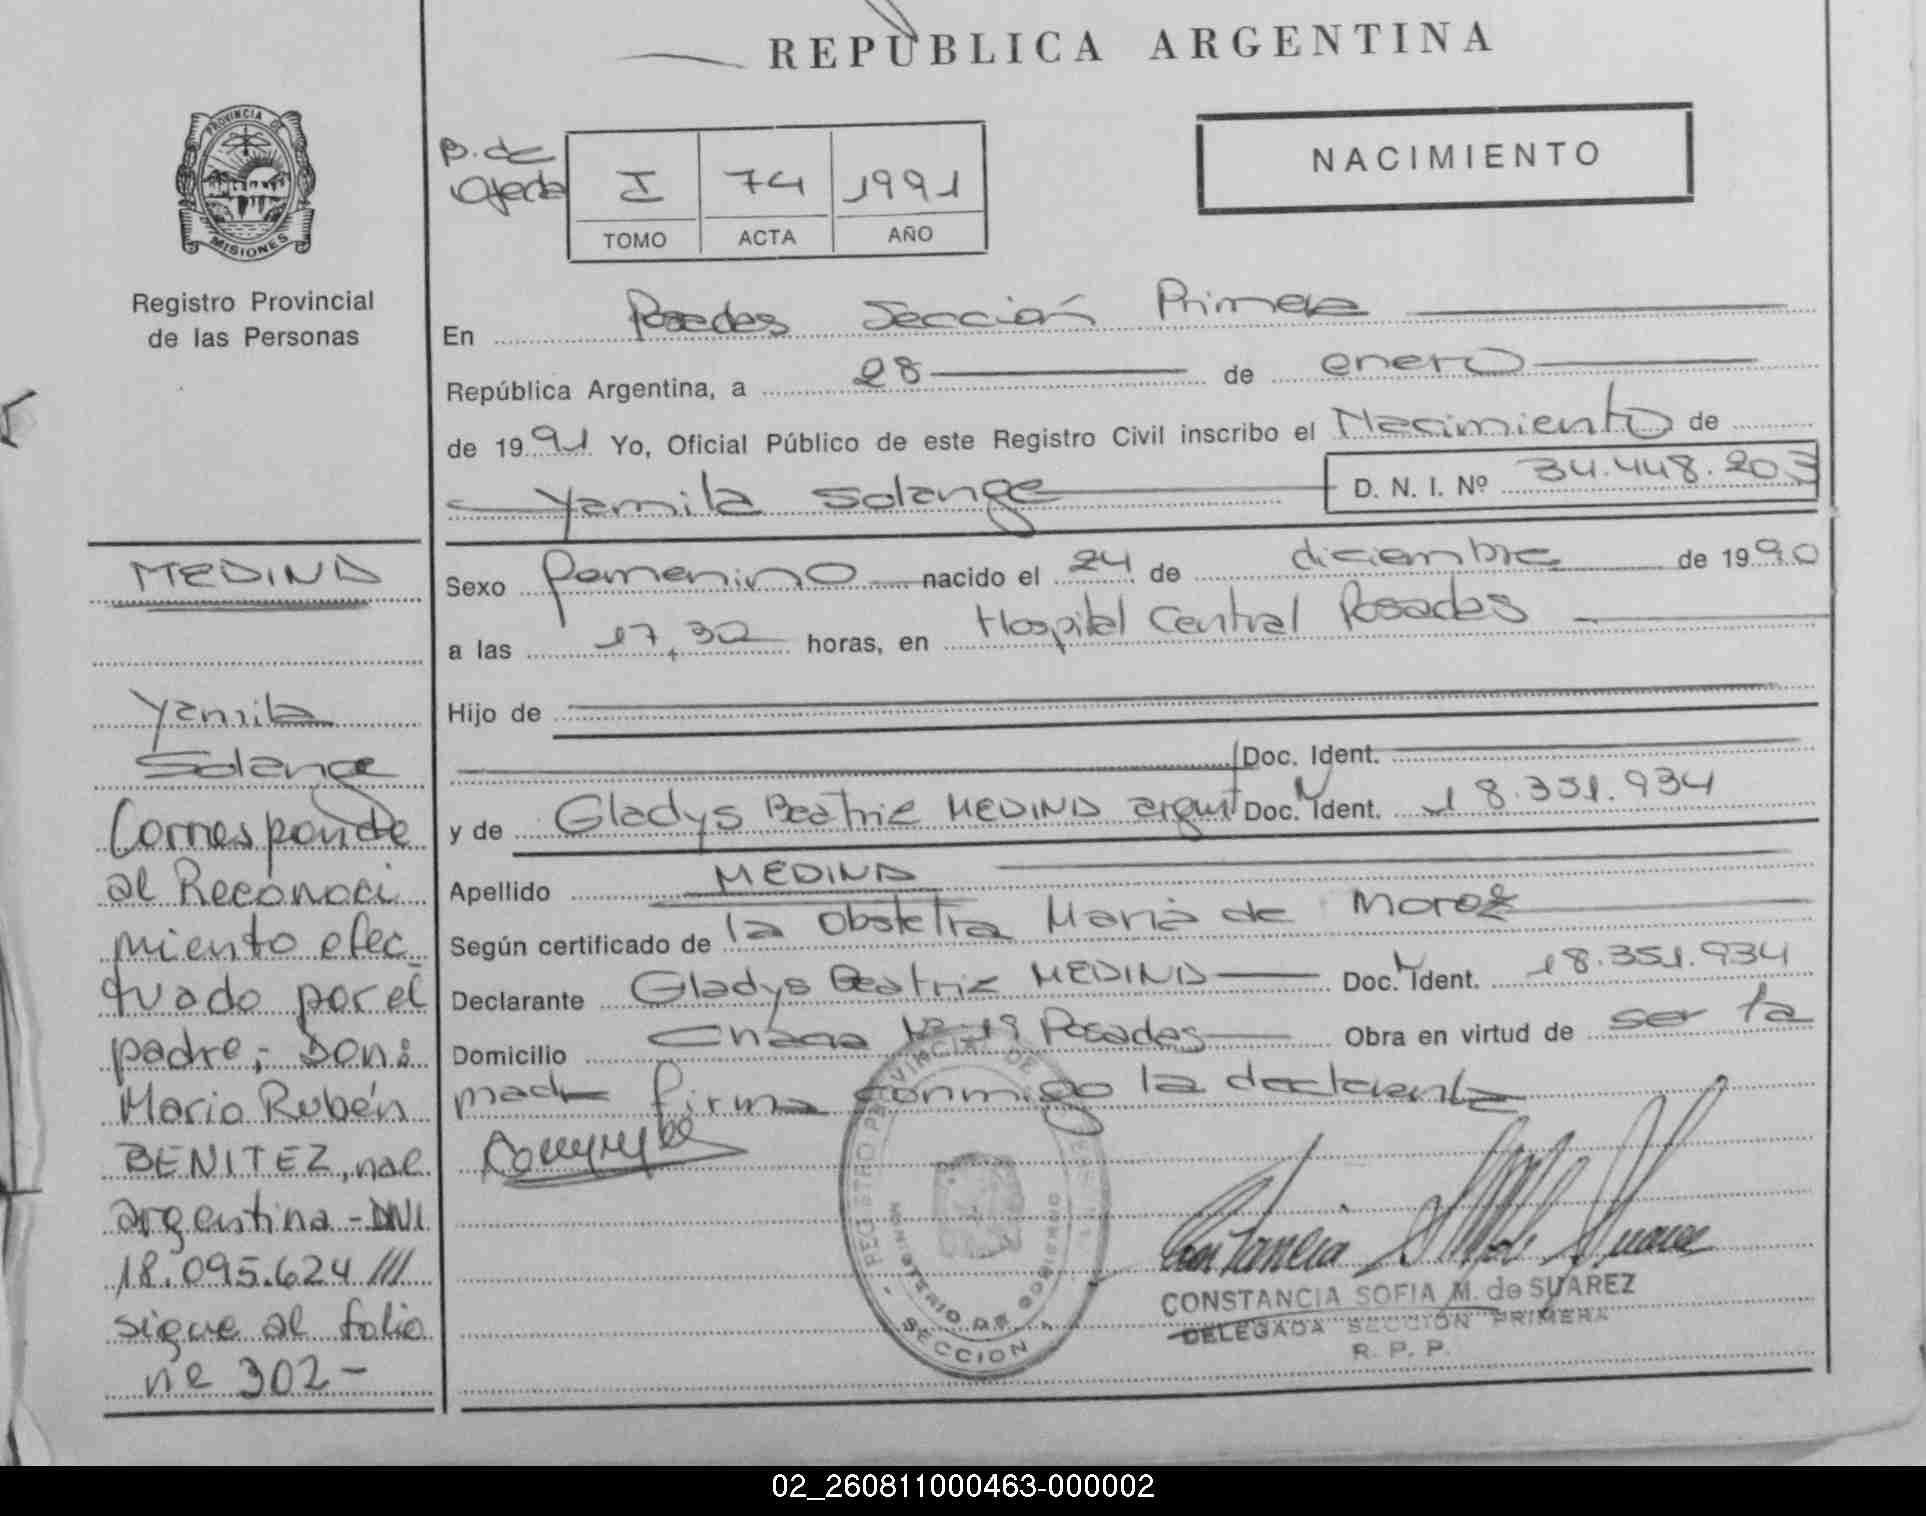 REPÚBLICA ARGENTINA
PROVINCIA DE
MISIONES
Registro Provincial
de las Personas
B. de
Ojeda
I 74 1991
TOMO ACTA AÑO
NACIMIENTO
En Posadas Sección Primera
República Argentina, a 28 de enero
de 1991 Yo, Oficial Público de este Registro Civil inscribo el Nacimiento de
Yamila Solange D. N. I. Nº 34.448.203
Sexo femenino nacido el 24 de diciembre de 1990
a las 17,30 horas, en Hospital Central Posadas
Hijo de
Doc. Ident.
y de Gladys Beatriz MEDINA argent Doc. Ident. 18.351.934
Apellido MEDINA
Según certificado de la Obstetra María de Moroz
Declarante Gladys Beatriz MEDINA Doc. Ident. 18.351.934
Domicilio Chacra Nº 19 Posadas Obra en virtud de ser la
madre firma conmigo la declarante
MEDINA
Yamila
Solange
Corresponde
al Reconoci
miento efec
tuado por el
padre; Don:
Mario Rubén
BENITEZ, nac.
argentina - DNI
18.095.624 ///
sigue al folio
nº 302 -
REGISTRO PROVINCIAL DE
MINISTERIO DE GOBIERNO
SECCION 1
CONSTANCIA SOFIA M. de SUAREZ
DELEGADA SECCION PRIMERA
R. P. P.
02_260811000463-000002